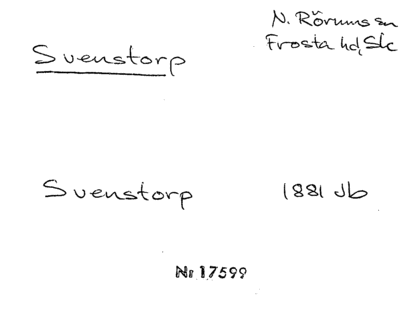 N. Rörums sn
Svenstorp
Frosta hd, Sk
Svenstorp 1881 Jb
Nr 17599